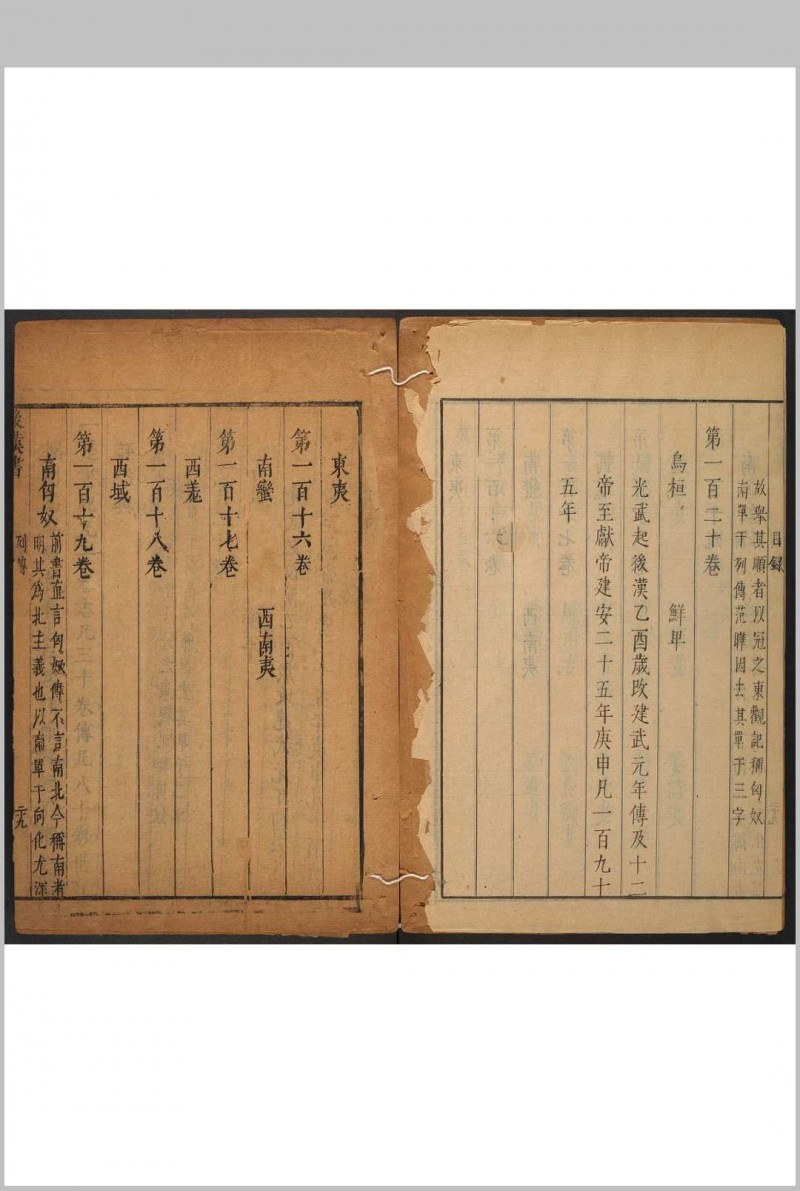 東夷
第一百十六卷
南蠻 西南夷
第一百十七卷
西羌
第一百十八卷
西域
第一百十九卷
南匈奴 前書直言匈奴傳不言南北今稱南者
明其為北主義也以南單于向化尤深
後漢書 列傳
目錄
故舉其順者以冠之東觀記稱匈奴
南單于列傳范曄因去其單于三字
第一百二十卷
烏桓 鮮卑
光武起後漢乙酉歲改建武元年傳及十二
帝至獻帝建安二十五年庚申凡一百九十
五年